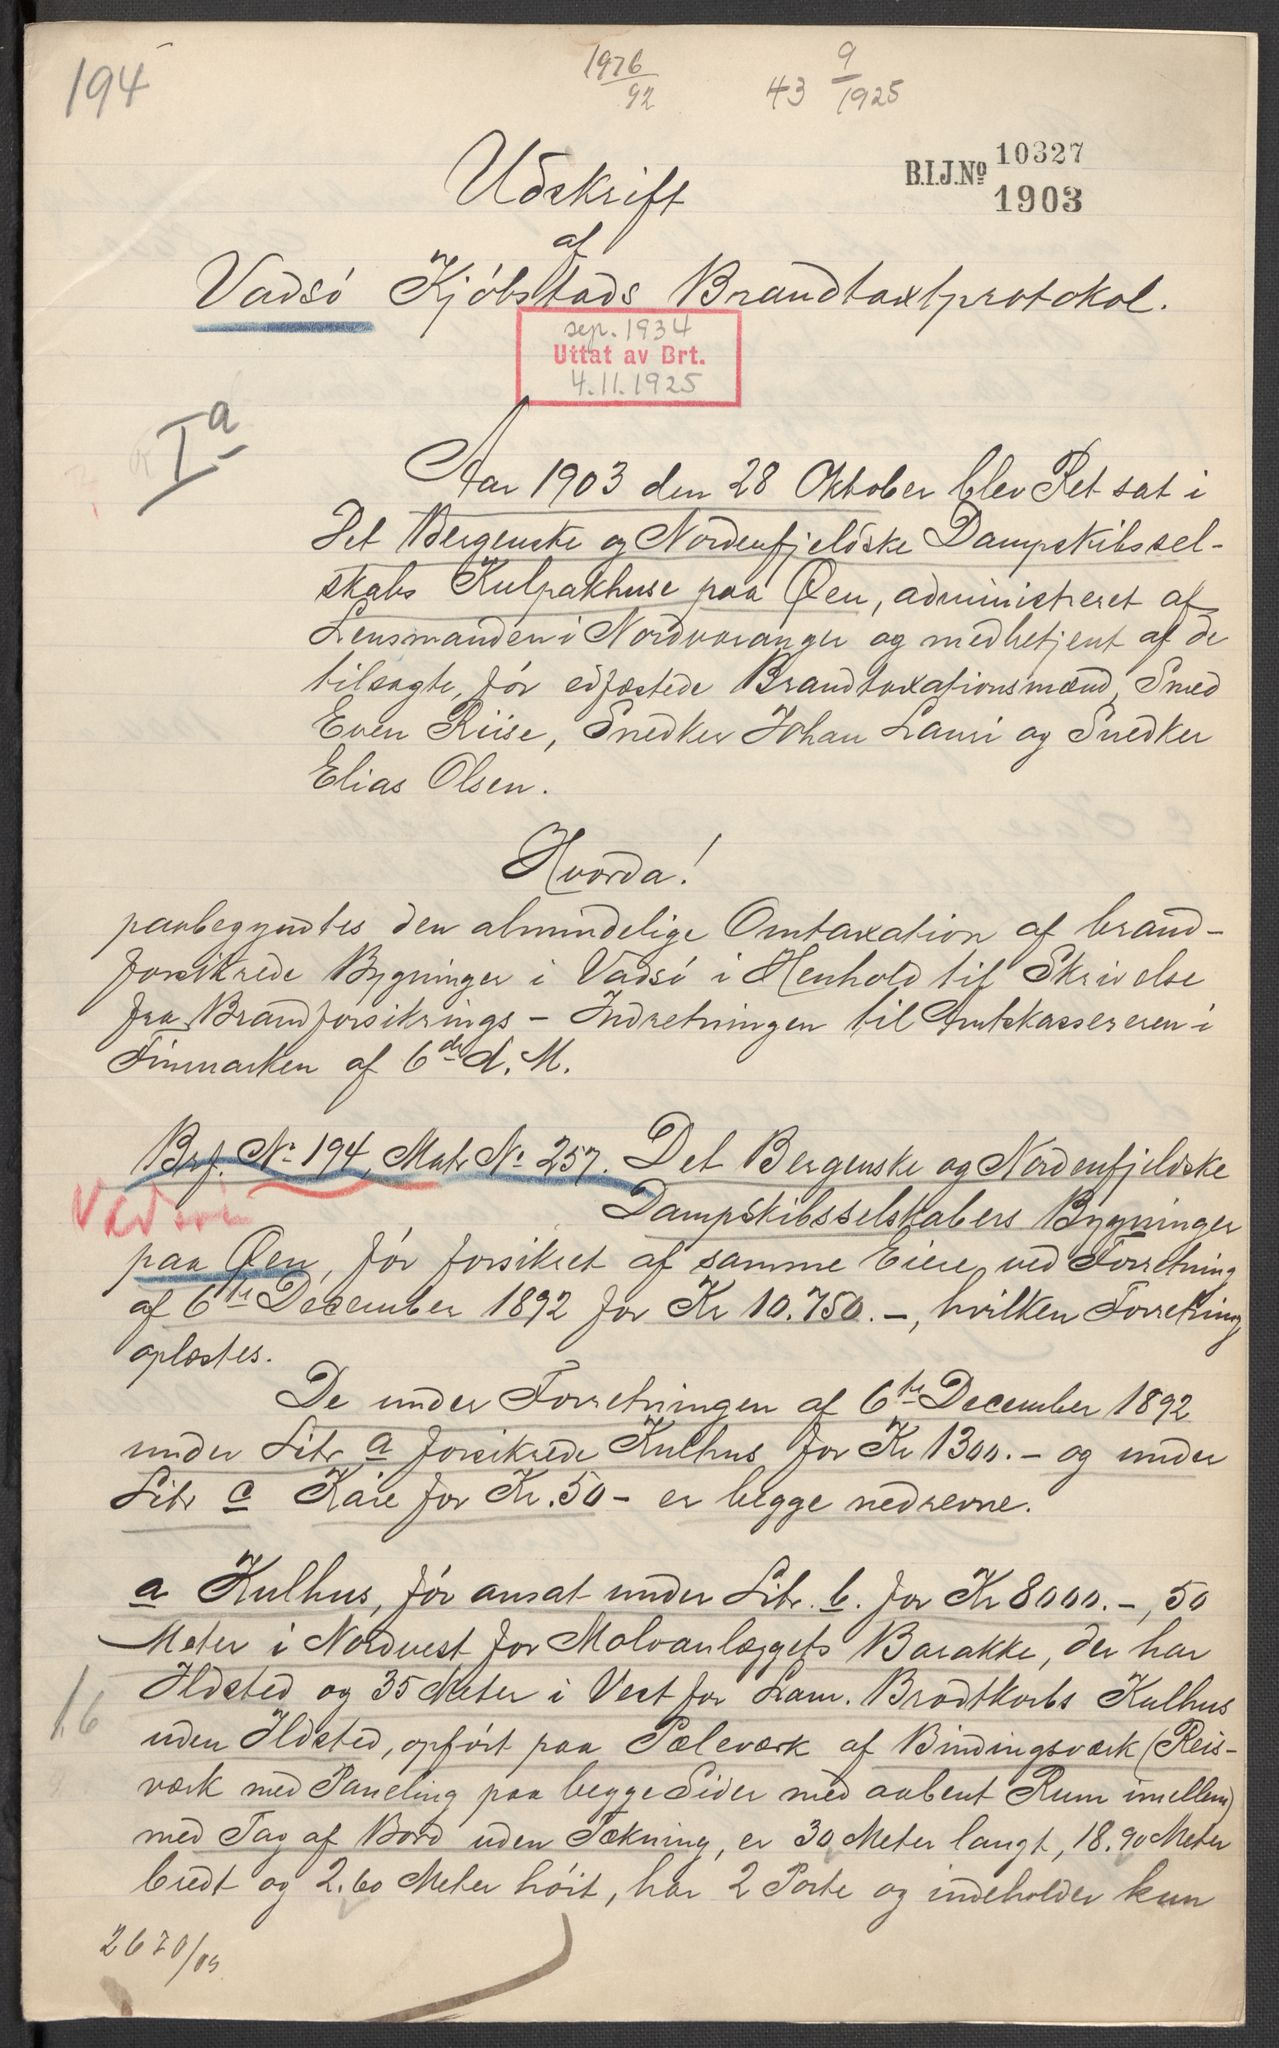 194
1976/92
43 9/1925
Udskrift
B.I.J.No 10327
1903
af
Vadsö Kjöbstads Brandtaxtprotokol.
sep. 1934
Uttat av Brt.
4.11.1925
I a
Aar 1903 den 28 Oktober blev Ret sat i
Det Bergenske og Nordenfjeldske Dampskibssel-
skabs Kulpakhuse paa Øen, administreret af
Lensmanden i Nordvaranger og medbetjent af de
tilsagte, för edfæstede Brandtaxationsmænd, Smed
Even Riise, Snedker Johan Lauri og Snedker
Elias Olsen.
Hvorda!
paabegyndtes den almindelige Omtaxation af brand-
forsikrede Bygninger i Vadsö i Henhold til Skrivelse
fra Brandforsikrings - Indretningen til Amtskassereren i
Finmarken af 6te d. M.
Brf. No 194, Matr No 257. Det Bergenske og Nordenfjeldske
Vadsö
Dampskibsselskabers Bygninger
paa Øen, för forsikret af samme Eiere ved Forretning
af 6te December 1892 for Kr 10.750.-, hvilken Forretning
oplæstes.
De under Forretningen af 6te December 1892
under Litr a forsikrede Kulhus for Kr 1300.- og under
Litr c Kaie for Kr. 50 - er begge nedrevne.
a Kulhus, för ansat under Litr. b. for Kr 8000.-, 50
Meter i Nordvest for Moloanlæggets Barakke, der har
Ildsted og 35 Meter i Vest for Lam. Brodtkorbs Kulhus
1.6
uden Ildsted, opfört paa Pæleværk af Bindingsværk (Reis-
værk med Paneling paa begge Sider med aabent Rum imellem)
med Tag af Bord uden Tækning, er 30 Meter langt, 18.90 Meter
bredt og 2.60 Meter höit, har 2 Porte og indeholder kun
2670/03